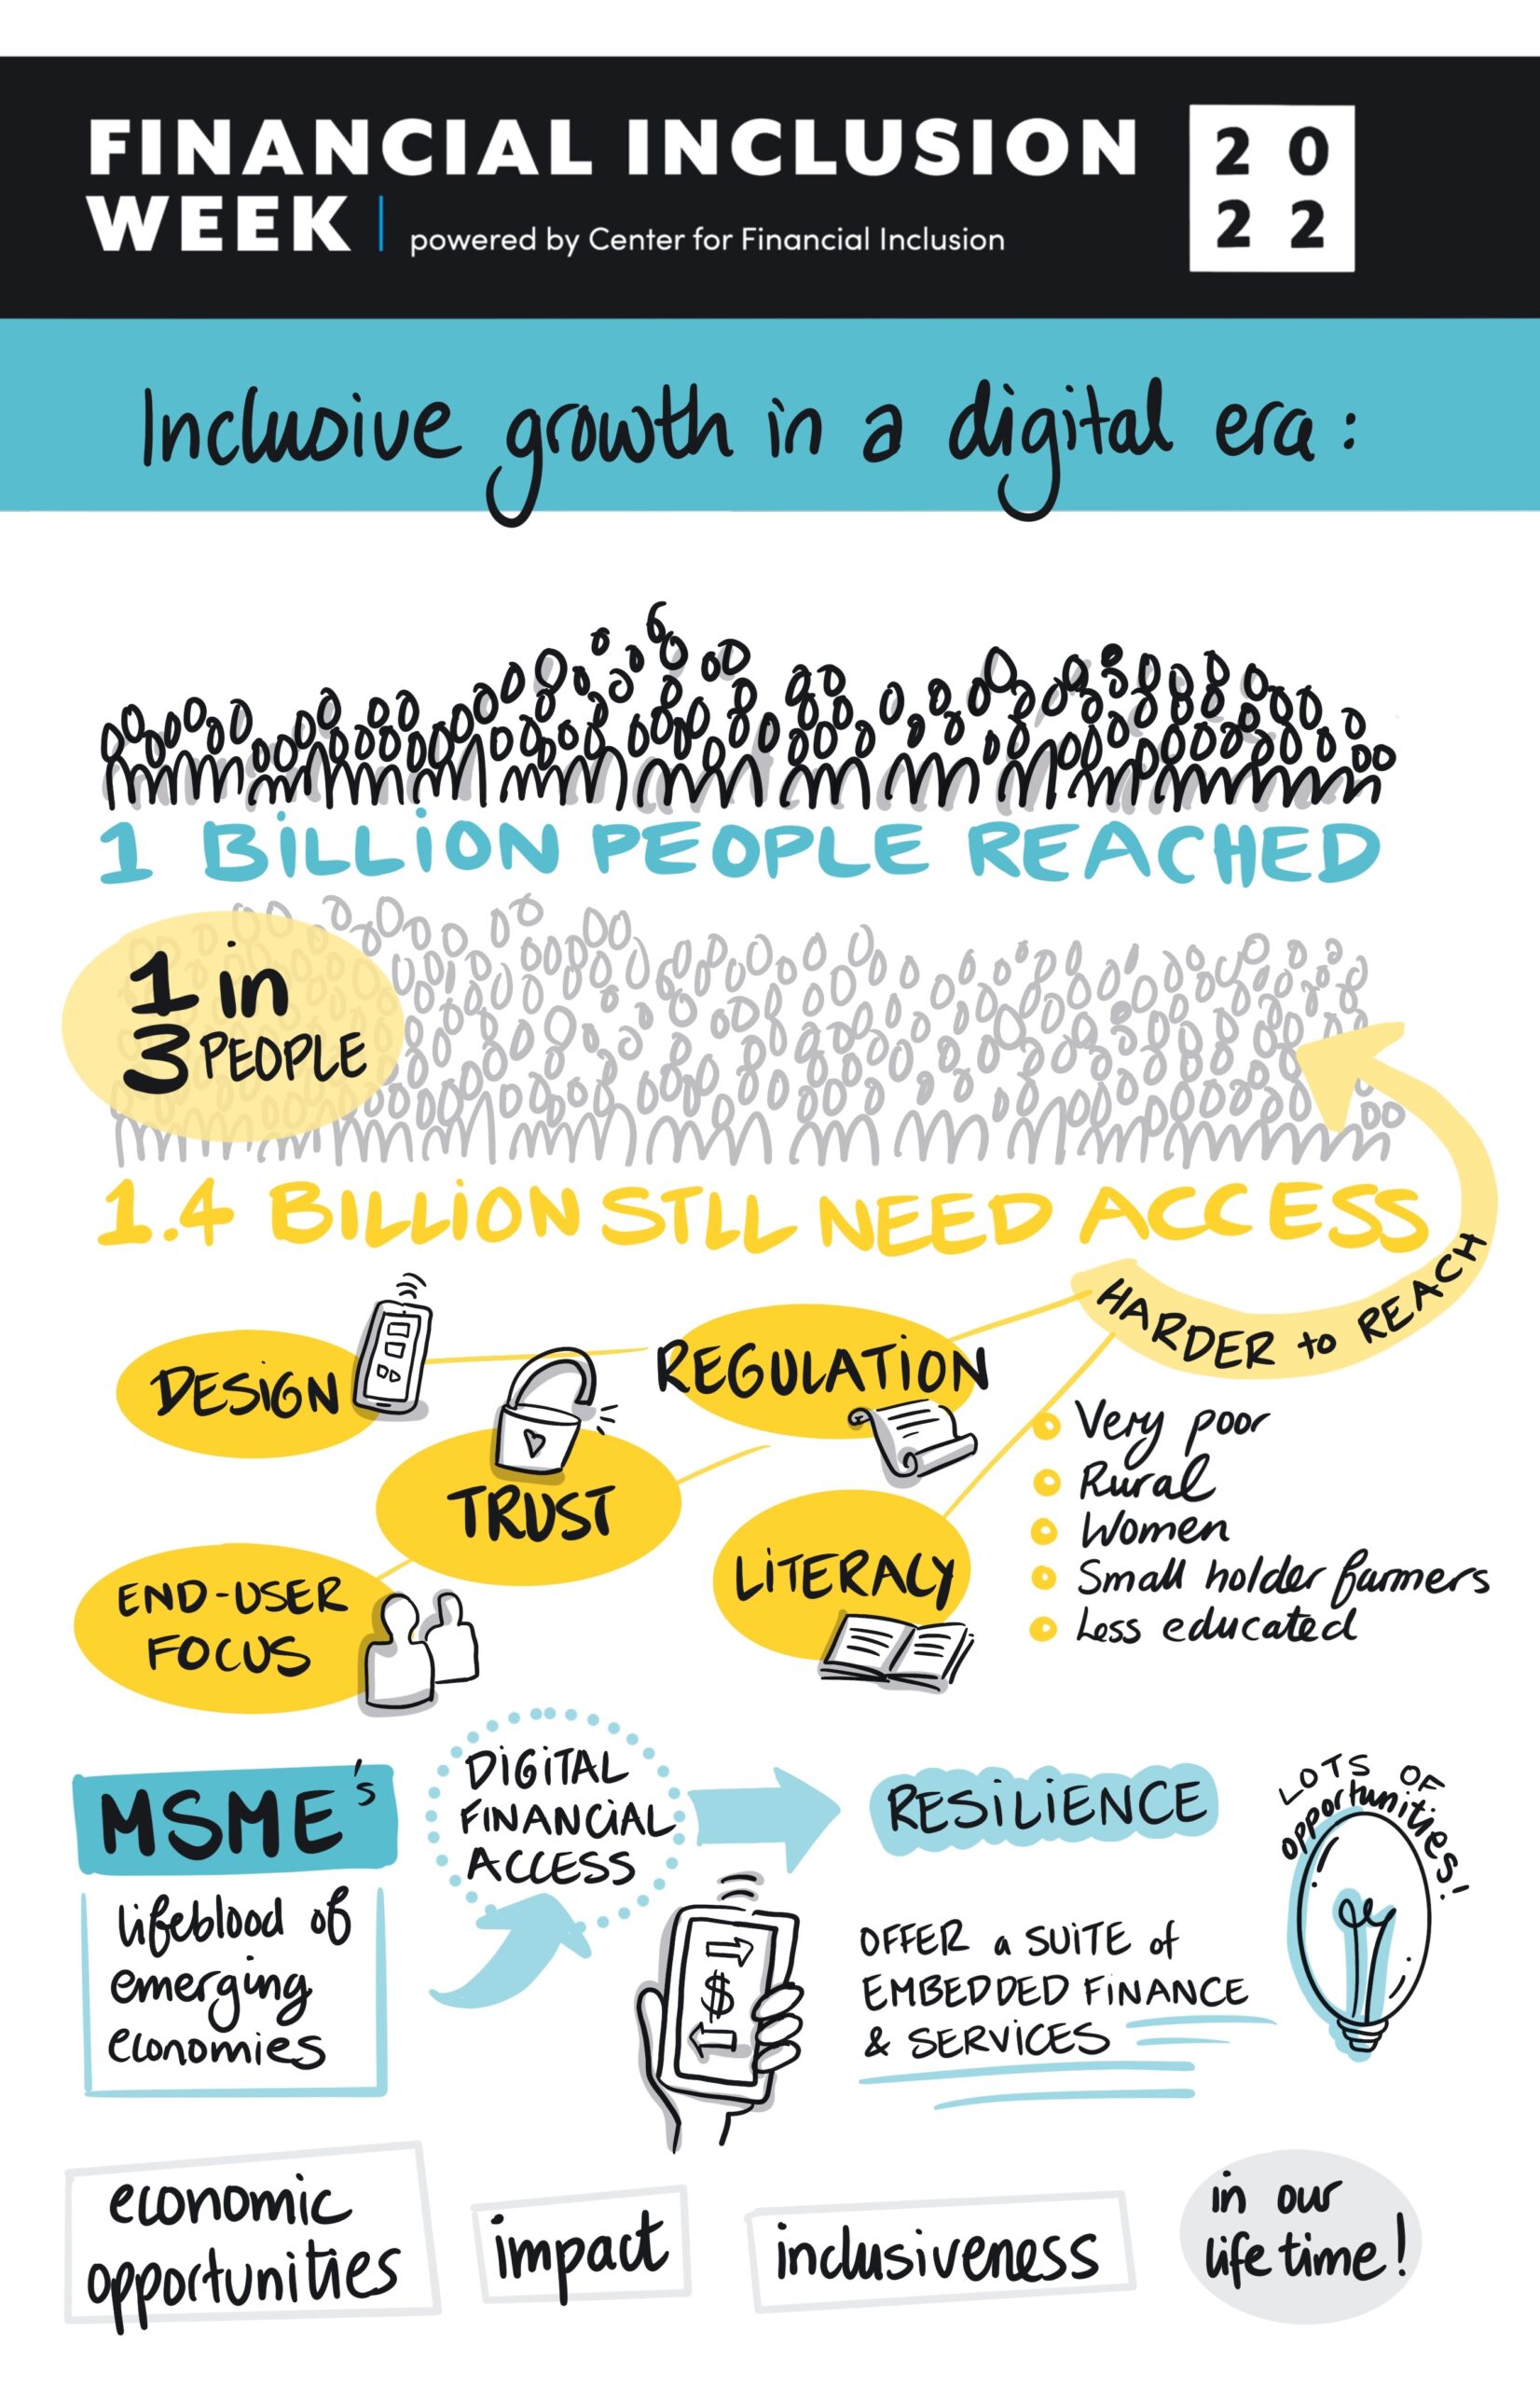 FINANCIAL INCLUSION
WEEK | powered by Center for Financial Inclusion
2 0
2 2
Inclusive growth in a digital era:
1 BILLION PEOPLE REACHED
1 in
3 PEOPLE
1.4 BILLION STLL NEED ACCESS
HARDER to REACH
DESIGN
REGULATION
TRUST
END-USER
FOCUS
LITERACY
Very poor
Rural
Women
Small holder farmers
Less educated
MSME's
lifeblood of
emerging
economies
DIGITAL
FINANCIAL
ACCESS
$
RESILIENCE
OFFER a SUITE of
EMBEDDED FINANCE
& SERVICES
LOTS OF
opportunities!
economic
opportunities
impact
inclusiveness
in our
life time!